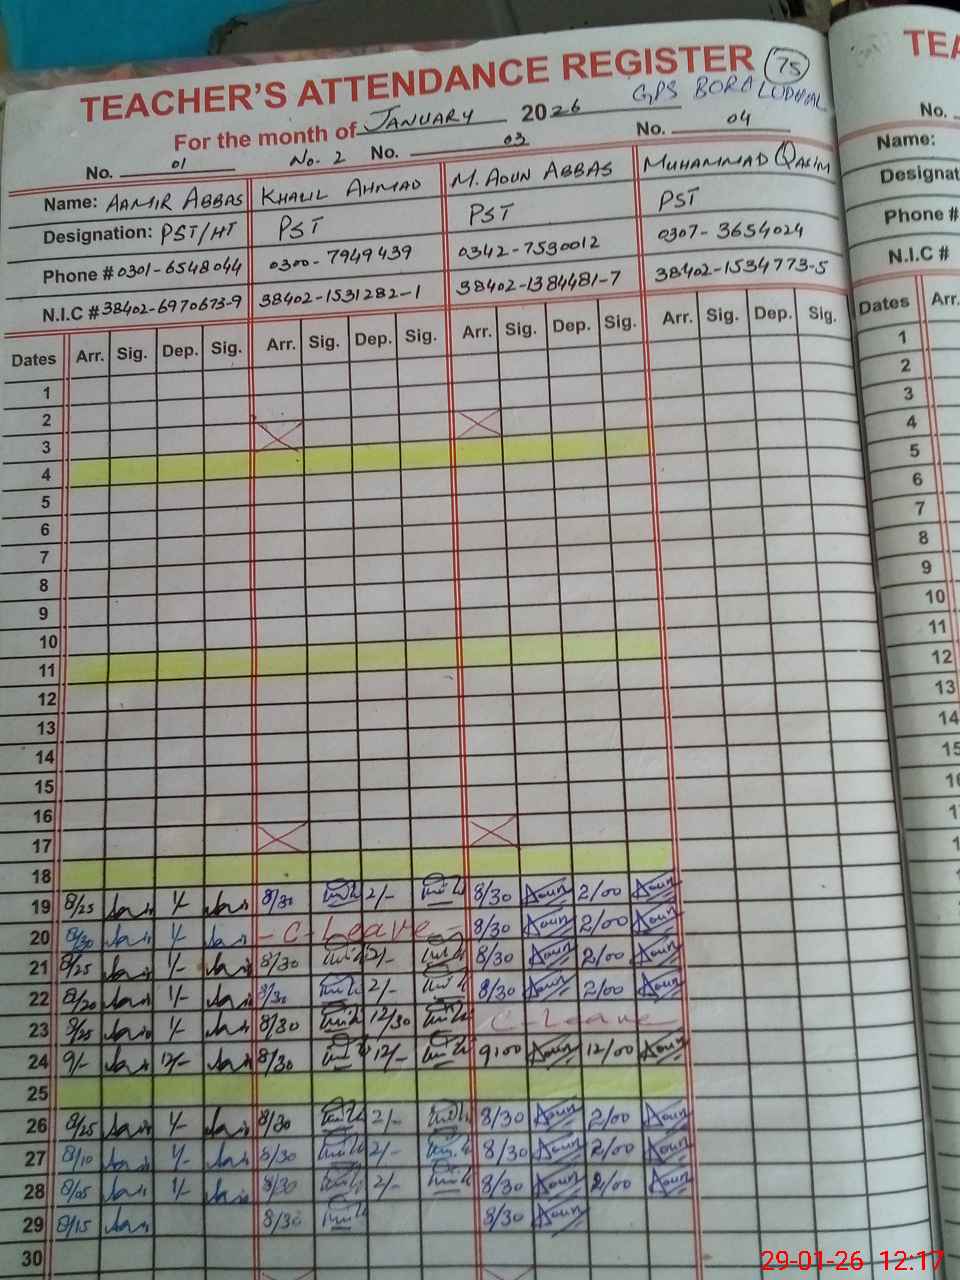 TEACHER'S ATTENDANCE REGISTER 75
GPS BORA LUDHAL
For the month of JANUARY 2026
No. 01 No. 2 No. 03 No. 04
Name: AAMIR ABBAS KHALIL AHMAD M. AOUN ABBAS MUHAMMAD QASIM
Designation: PST/HT PST PST PST
Phone # 0301-6548044 0300-7949439 0342-7530012 0307-3654024
N.I.C # 38402-6970673-9 38402-1531282-1 38402-1384481-7 38402-1534773-5
Dates Arr. Sig. Dep. Sig. Arr. Sig. Dep. Sig. Arr. Sig. Dep. Sig. Arr. Sig. Dep. Sig.
1
2
3
4
5
6
7
8
9
10
11
12
13
14
15
16
17
18
19 8/25 8/30 2/- 8/30 Aoun 2/00 Aoun
20 8/30 - C-Leave - 8/30 Aoun 2/00 Aoun
21 8/25 8/30 2/- 8/30 Aoun 2/00 Aoun
22 8/20 8/30 2/- 8/30 Aoun 2/00 Aoun
23 8/25 8/30 12/30 C-Leave
24 9/- 12/- 8/30 12/- 9:00 Aoun 12/00 Aoun
25
26 8/25 8/30 2/- 8/30 Aoun 2/00 Aoun
27 8/10 8/30 2/- 8/30 Aoun 2/00 Aoun
28 8/05 8/30 2/- 8/30 Aoun 2/00 Aoun
29 8/15 8/30 8/30 Aoun
30
TEA
No.
Name:
Designat
Phone #
N.I.C #
Dates Arr.
1
2
3
4
5
6
7
8
9
10
11
12
13
14
15
16
29-01-26 12:17